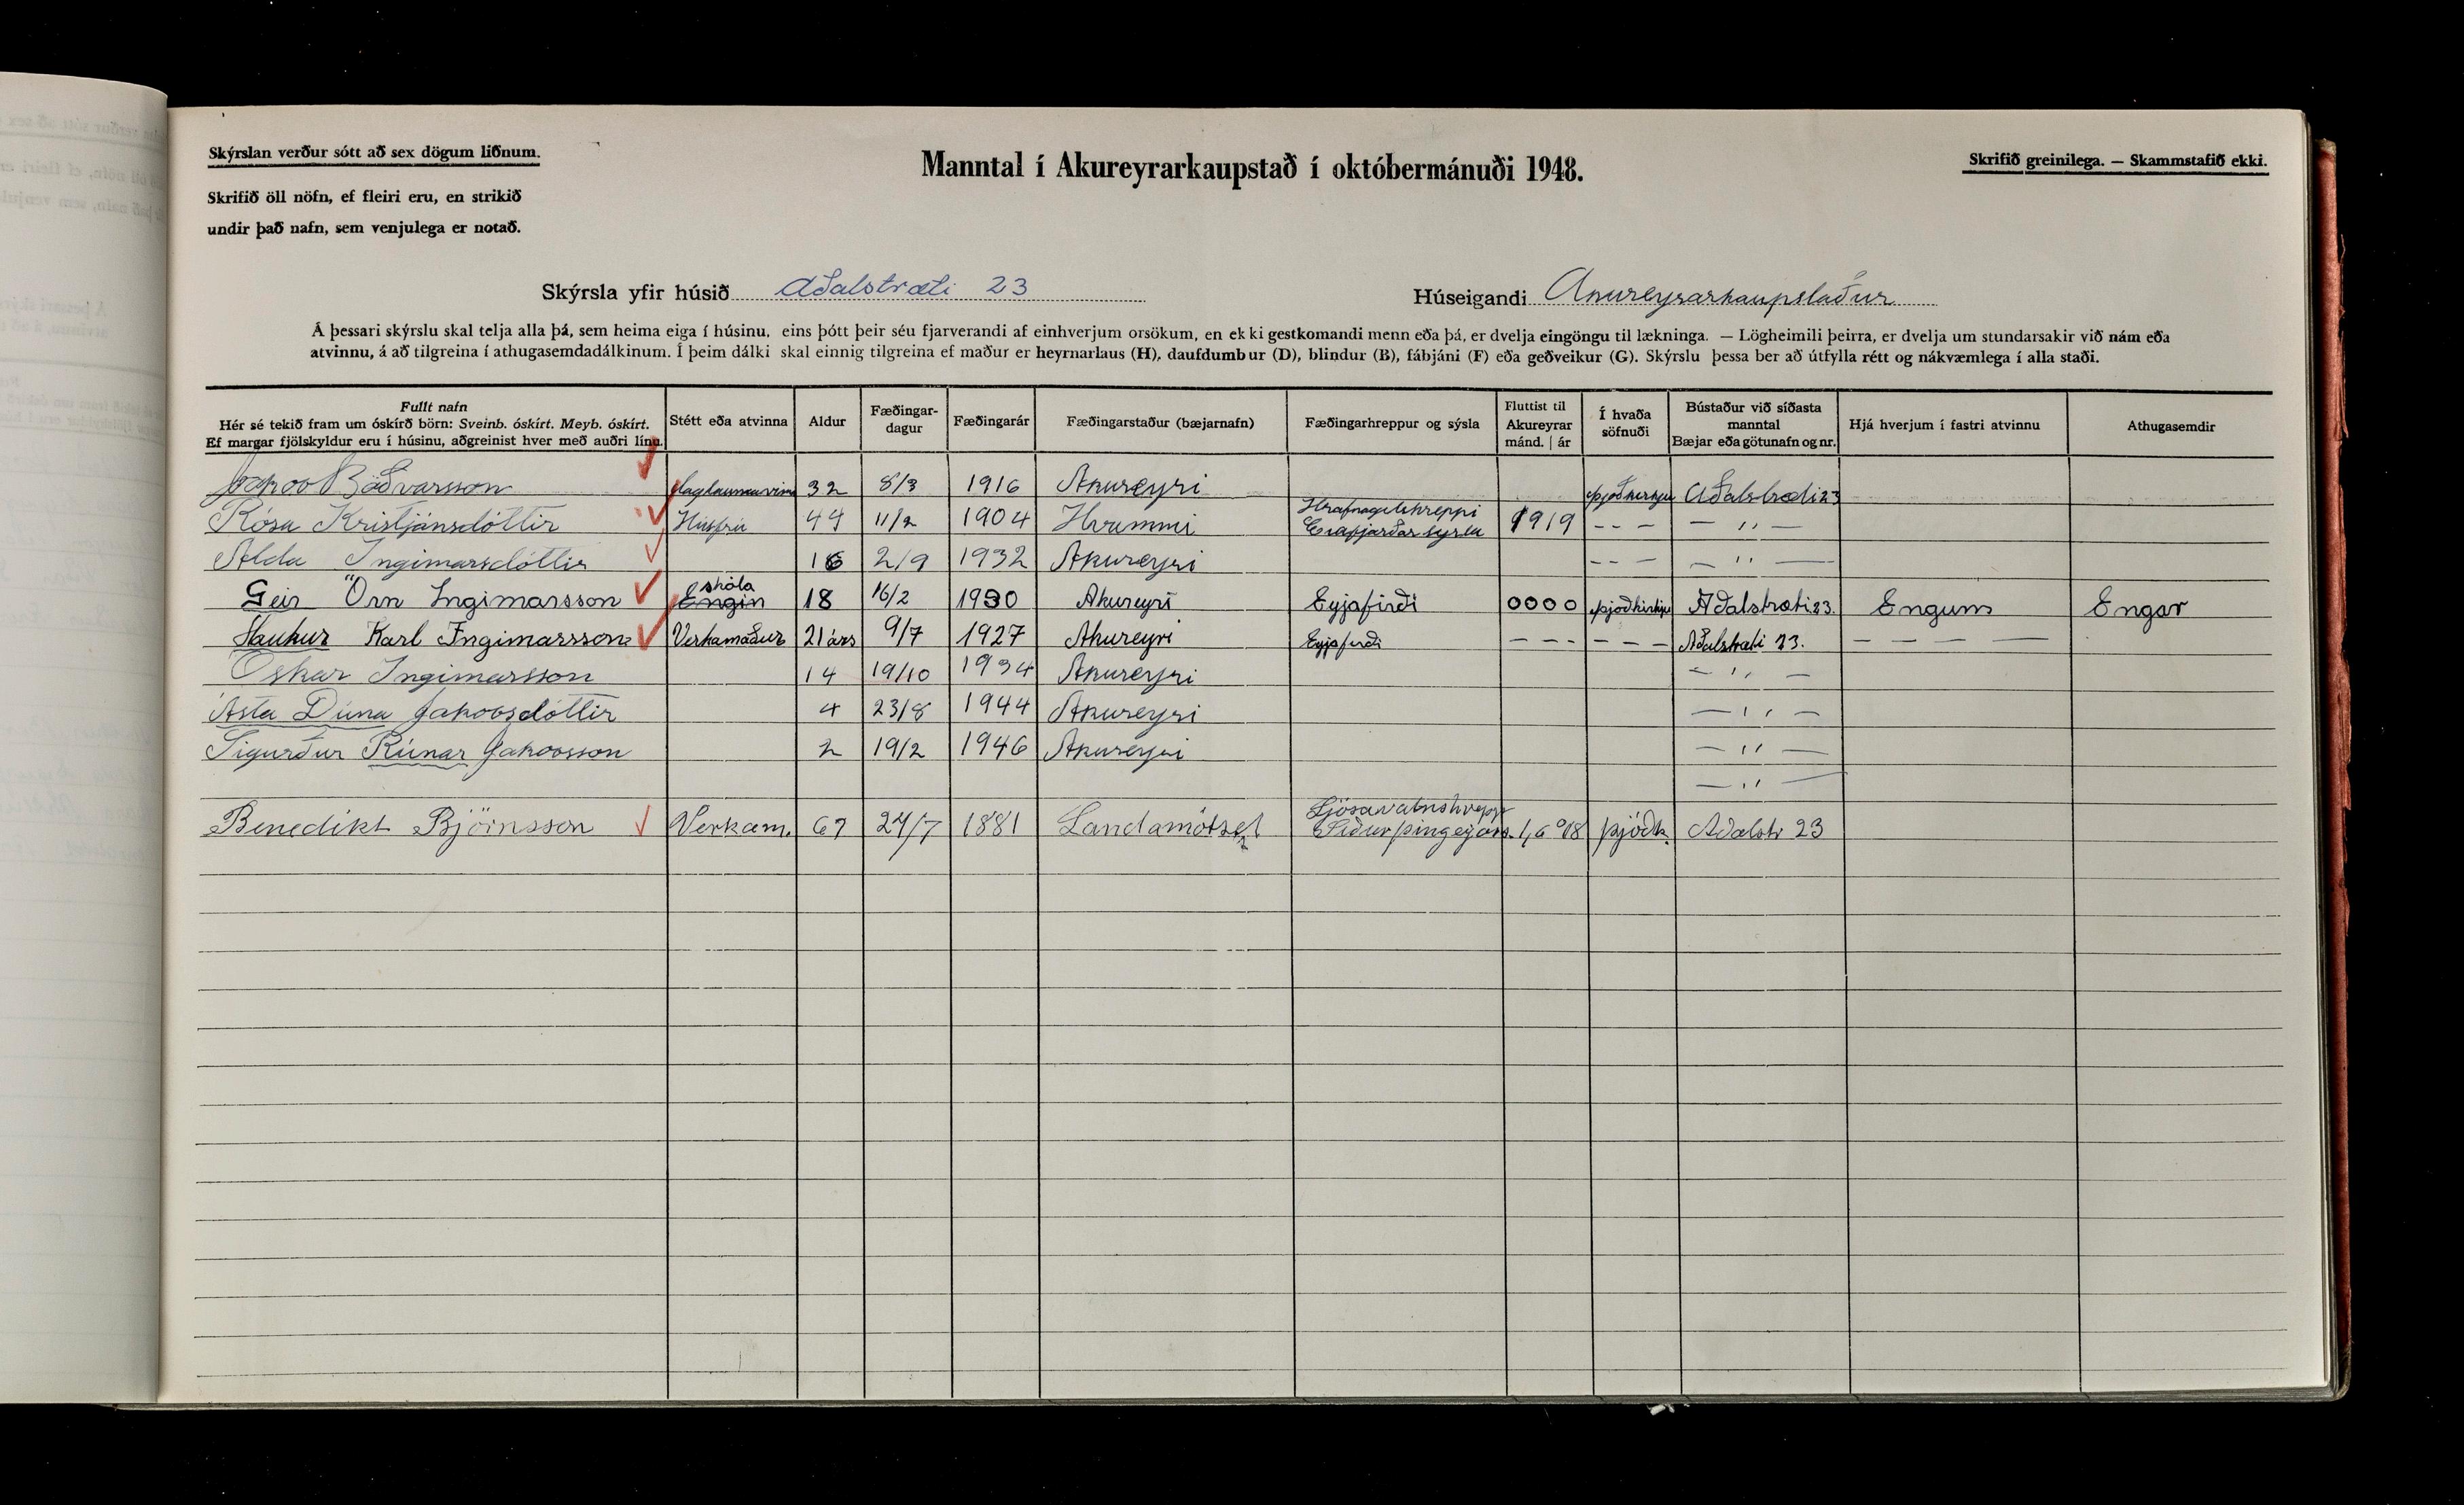 Skýrslan verður sótt að sex dögum liðnum.
Skrifið öll nöfn, ef fleiri eru, en strikið
undir það nafn, sem venjulega er notað.
Manntal í Akureyrarkaupstað í októbermánuði 1948.
Skrifið greinilega. — Skammstafið ekki.
Skýrsla yfir húsið Aðalstræti 23
Húseigandi Akureyrarkaupstaður
Á þessari skýrslu skal telja alla þá, sem heima eiga í húsinu, eins þótt þeir séu fjarverandi af einhverjum orsökum, en ekki gestkomandi menn eða þá, er dvelja eingöngu til lækninga. — Lögheimili þeirra, er dvelja um stundarsakir við nám eða
atvinnu, á að tilgreina í athugasemdadálkinum. Í þeim dálki skal einnig tilgreina ef maður er heyrnarlaus (H), daufdumbur (D), blindur (B), fábjáni (F) eða geðveikur (G). Skýrslu þessa ber að útfylla rétt og nákvæmlega í alla staði.
Fullt nafn
Hér sé tekið fram um óskírð börn: Sveinb. óskírt. Meyb. óskírt.
Ef margar fjölskyldur eru í húsinu, aðgreinist hver með auðri línu.
Stétt eða atvinna
Aldur
Fæðingar-
dagur
Fæðingarár
Fæðingarstaður (bæjarnafn)
Fæðingarhreppur og sýsla
Fluttist til
Akureyrar
mánd. | ár
Í hvaða
söfnuði
Bústaður við síðasta
manntal
Bæjar eða götunafn og nr.
Hjá hverjum í fastri atvinnu
Athugasemdir
Jakob Böðvarsson 32 8/3 1916 Akureyri þjóðkirkju Aðalstræti 23
Rósa Kristjánsdóttir Húsfrú 44 11/2 1904 Hvammi Hrafnagilshreppi Eyjafjarðarsýslu 1919 - - - — " —
Alda Ingimarsdóttir 16 2/9 1932 Akureyri - - - — " —
Geir Örn Ingimarsson skóla Engin 18 16/2 1930 Akureyri Eyjafirði 0000 þjóðkirkju Aðalstræti 23. Engum Engar
Haukur Karl Ingimarsson Verkamaður 21 árs 9/7 1927 Akureyri Eyjafirði - - - - - - Aðalstræti 23. - - - -
Óskar Ingimarsson 14 19/10 1934 Akureyri — " —
Ásta Dúna Jakobsdóttir 4 23/8 1944 Akureyri — " —
Sigurður Rúnar Jakobsson 2 19/2 1946 Akureyri — " —
— " —
Benedikt Björnsson Verkam. 67 27/7 1881 Landamótsel Ljósavatnshrepp þjóðk. Aðalstr 23